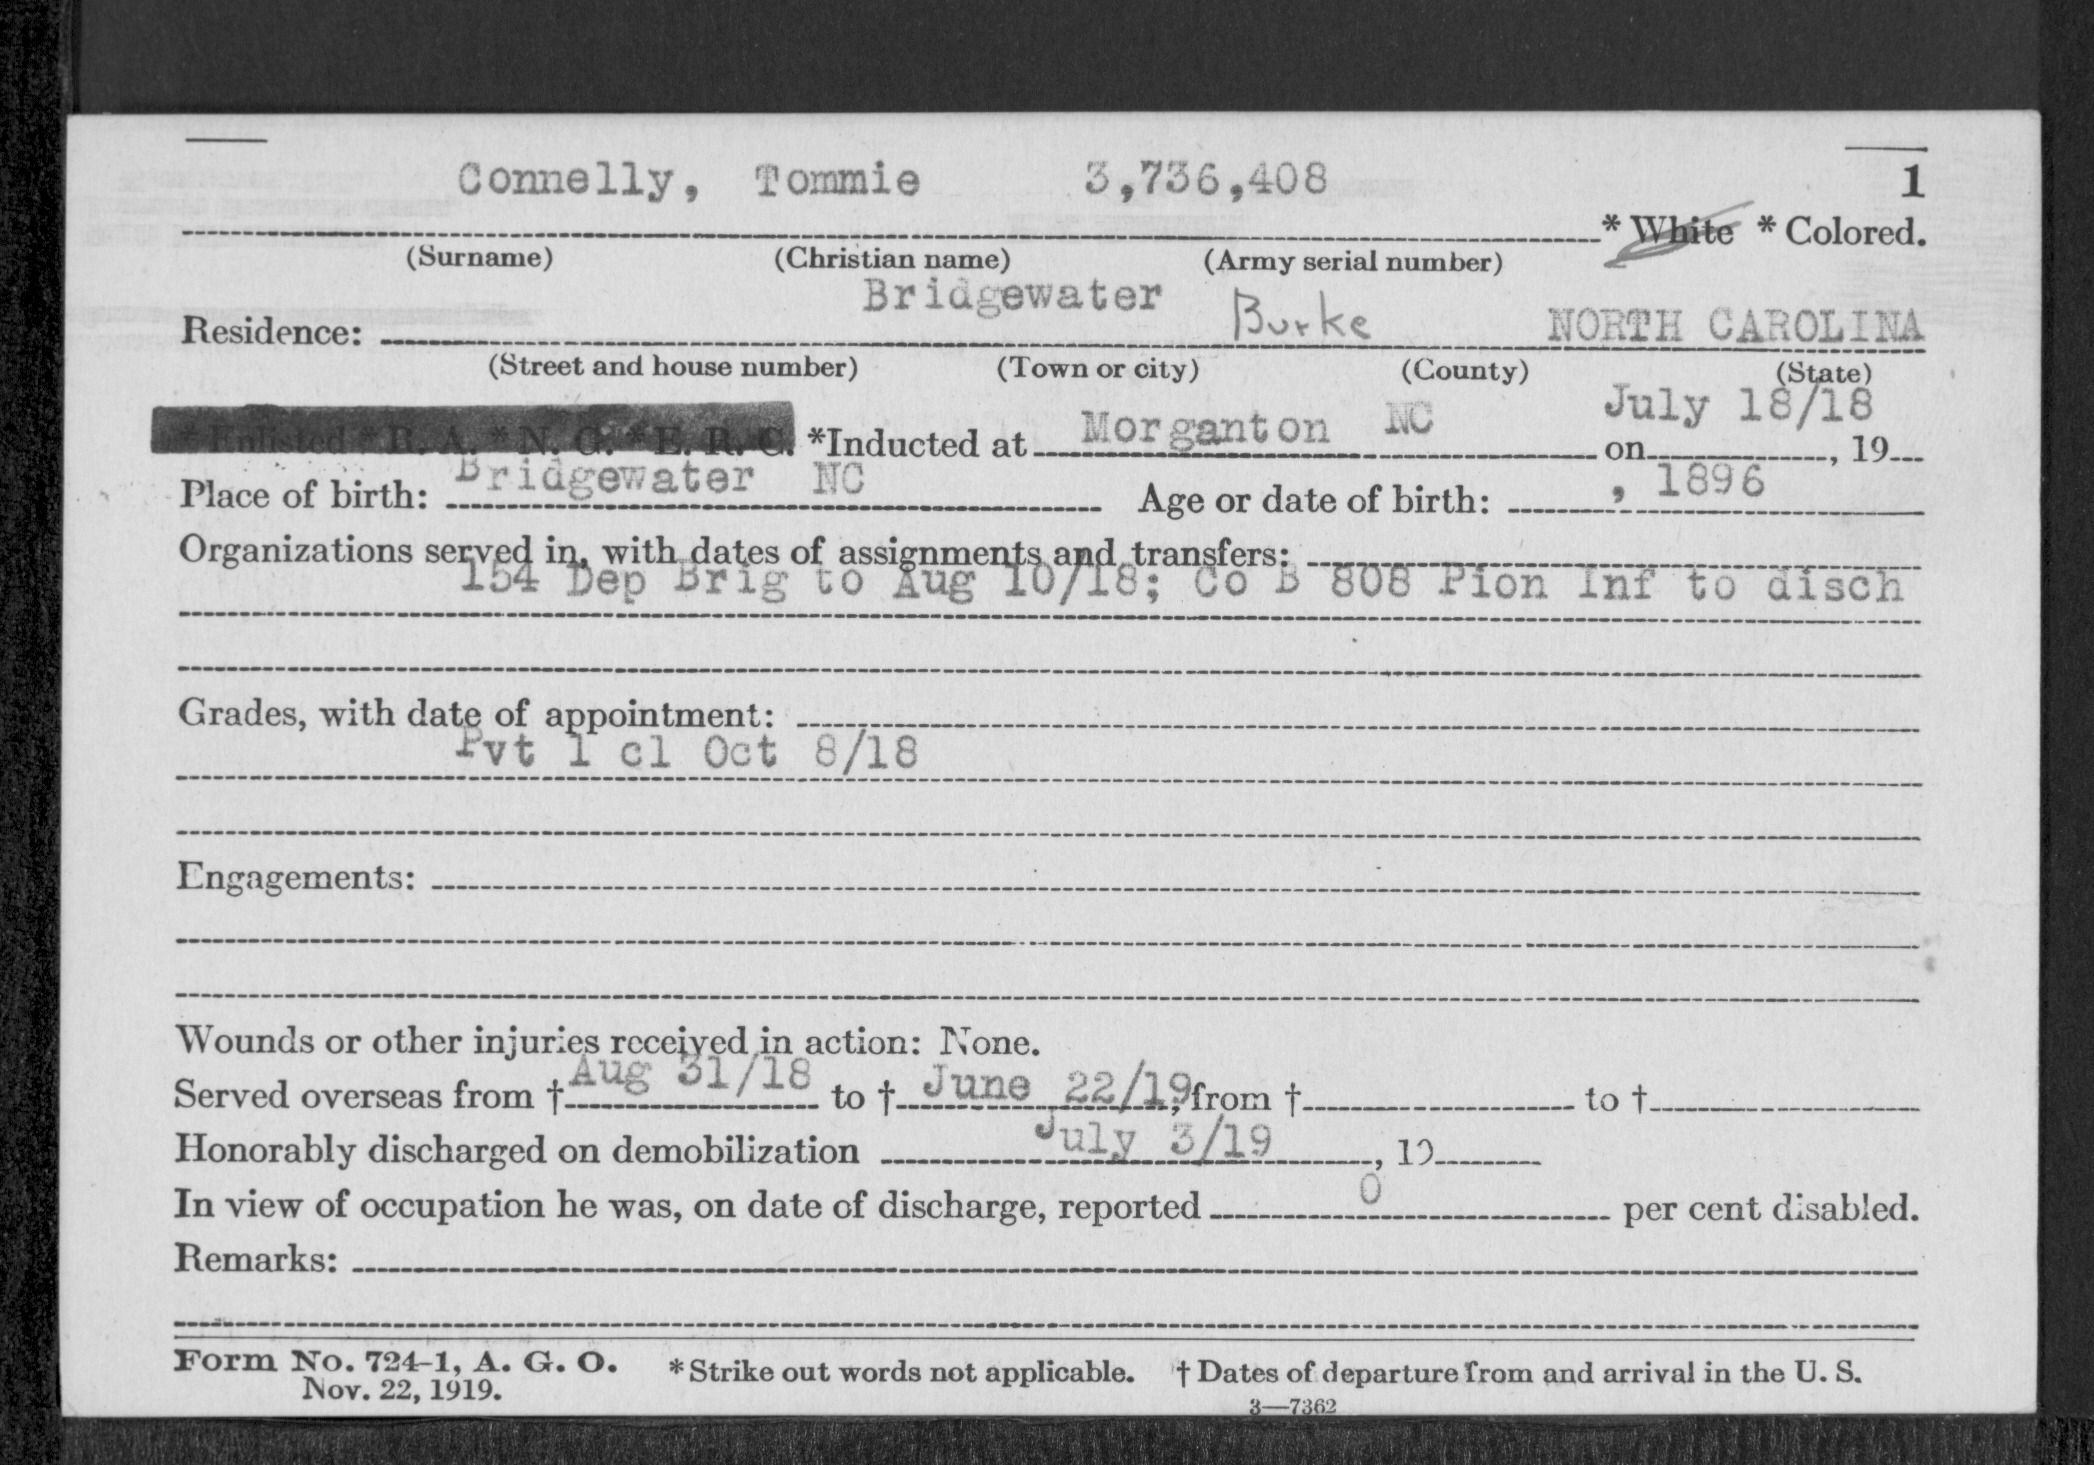 Connelly, Tommie 3,736,408 1
* White * Colored.
(Surname) (Christian name) (Army serial number)
Bridgewater Burke NORTH CAROLINA
Residence:
(Street and house number) (Town or city) (County) (State)
* Enlisted * R. A. * N. G. * E. R. C. *Inducted at Morganton NC on July 18/18, 19
Place of birth: Bridgewater NC Age or date of birth: , 1896
Organizations served in, with dates of assignments and transfers:
154 Dep Brig to Aug 10/18; Co B 808 Pion Inf to disch
Grades, with date of appointment:
Pvt 1 cl Oct 8/18
Engagements:
Wounds or other injuries received in action: None.
Served overseas from † Aug 31/18 to † June 22/19, from † to †
Honorably discharged on demobilization July 3/19, 19
In view of occupation he was, on date of discharge, reported 0 per cent disabled.
Remarks:
Form No. 724-1, A. G. O. * Strike out words not applicable. † Dates of departure from and arrival in the U. S.
Nov. 22, 1919.
3—7362